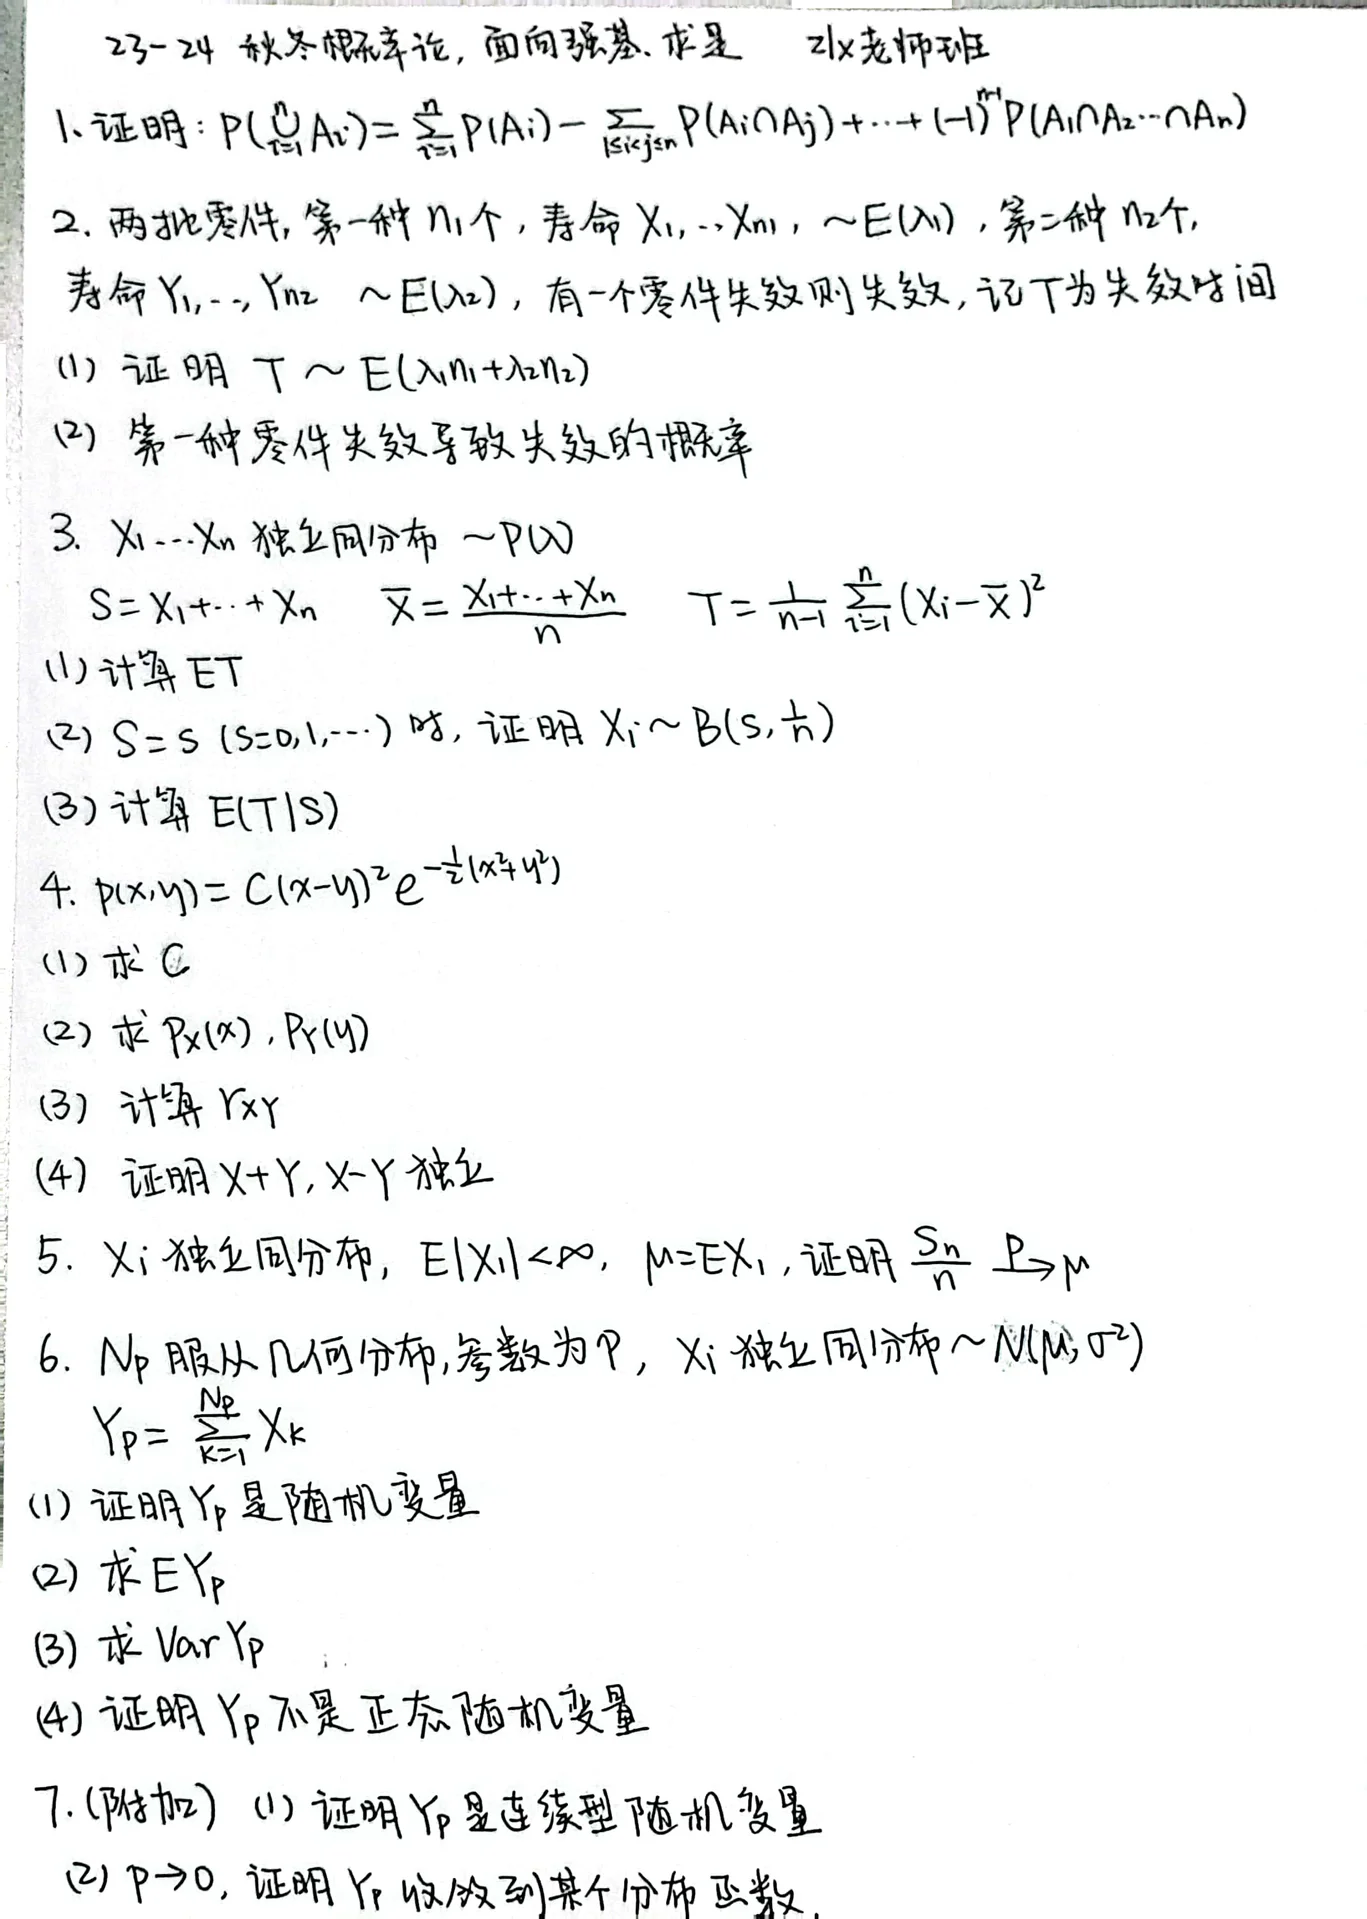 23-24 秋冬概率论, 面向强基、求是 zlx老师班
1、证明: P(⋃_{i=1}^{n} Ai) = ∑_{i=1}^{n} P(Ai) - ∑_{1≤i<j≤n} P(Ai∩Aj) + ··· + (-1)^{n-1} P(A₁∩A₂···∩An)
2. 两批零件, 第一种 n₁个, 寿命 X₁, ··· Xn₁, ~E(λ₁), 第二种 n₂个,
寿命 Y₁, ···, Yn₂ ~E(λ₂), 有一个零件失效则失效, 记 T 为失效时间
(1) 证明 T ~ E(λ₁n₁+λ₂n₂)
(2) 第一种零件失效导致失效的概率
3. X₁···Xn 独立同分布 ~P(λ)
S = X₁+···+Xn X̄ = (X₁+···+Xn)/n T = 1/(n-1) ∑_{i=1}^{n} (Xi-X̄)²
(1) 计算 ET
(2) S=s (s=0,1,···) 时, 证明 Xi ~ B(s, 1/n)
(3) 计算 E(T|S)
4. p(x,y) = C(x-y)² e^{-½(x²+y²)}
(1) 求 C
(2) 求 Px(x), PY(y)
(3) 计算 rXY
(4) 证明 X+Y, X-Y 独立
5. Xi 独立同分布, E|X₁|<∞, μ=EX₁, 证明 Sn/n →^P μ
6. Np 服从几何分布, 参数为 P, Xi 独立同分布 ~ N(μ, σ²)
Yp = ∑_{k=1}^{Np} Xk
(1) 证明 Yp 是随机变量
(2) 求 EYp
(3) 求 Var Yp
(4) 证明 Yp 不是正态随机变量
7. (附加) (1) 证明 Yp 是连续型随机变量
(2) p→0, 证明 Yp 收敛到某个分布函数.